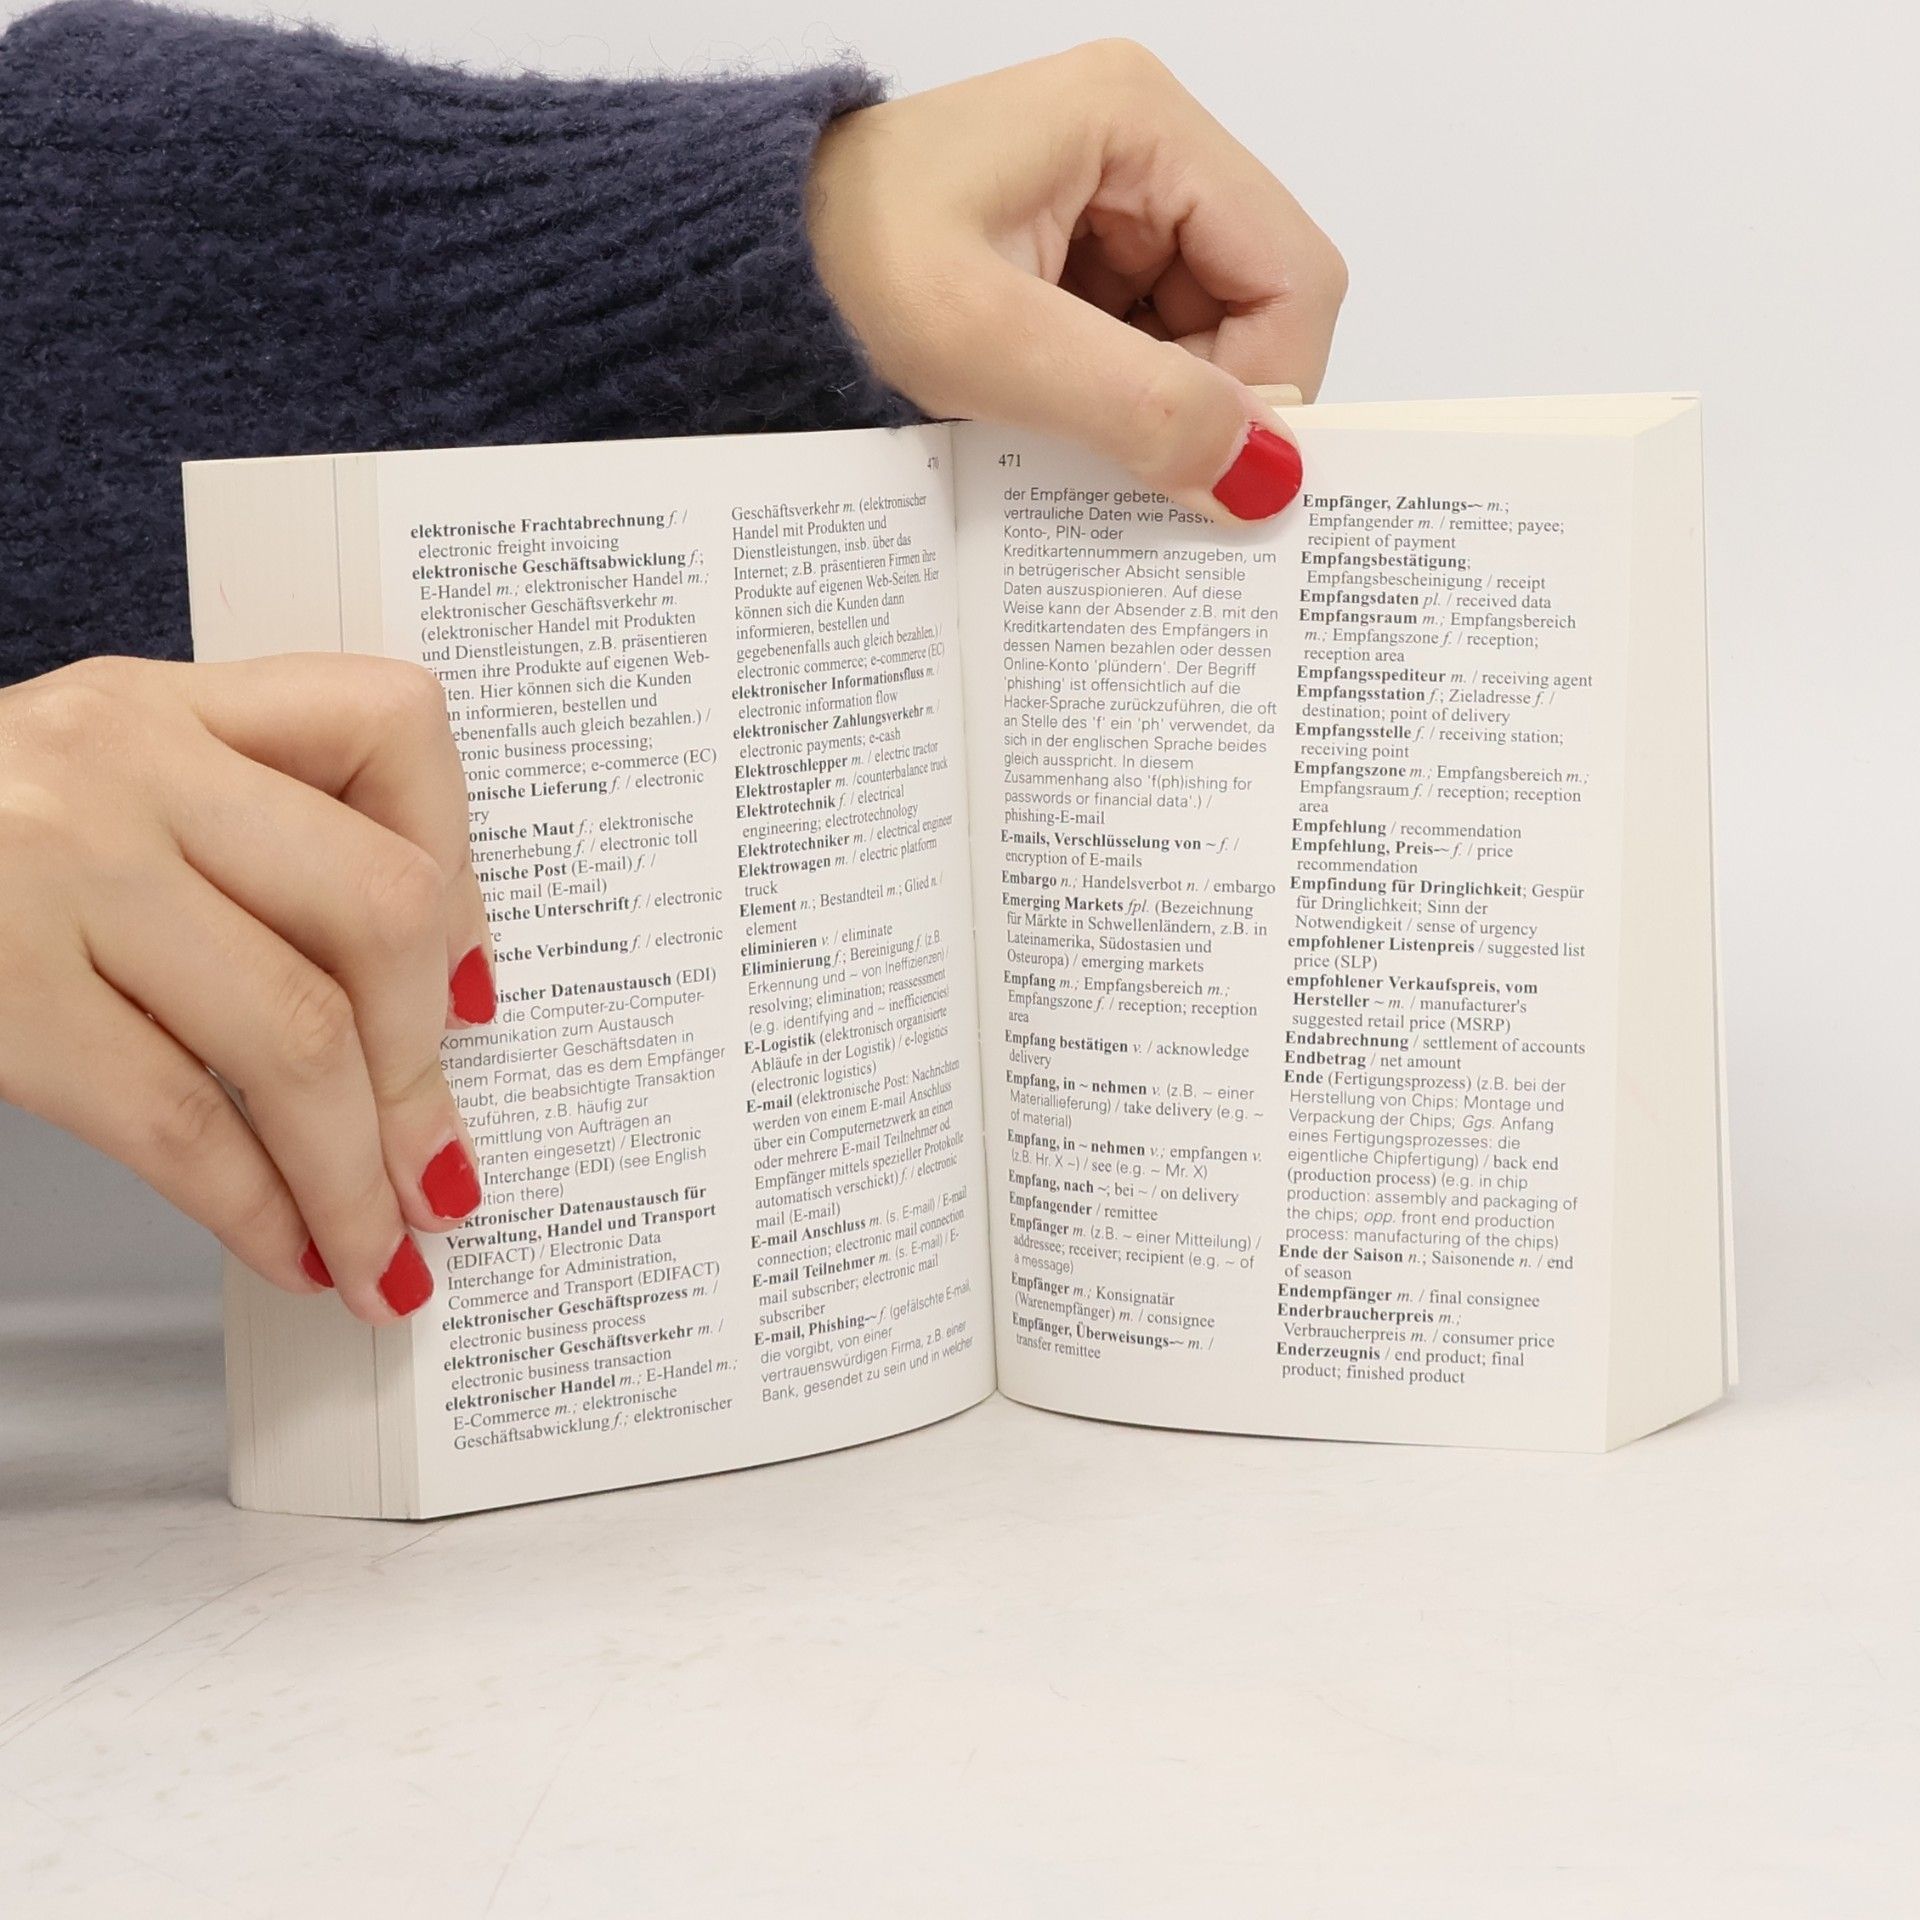 470
elektronische Frachtabrechnung f. /
electronic freight invoicing
elektronische Geschäftsabwicklung f.;
E-Handel m.; elektronischer Handel m.;
elektronischer Geschäftsverkehr m.
(elektronischer Handel mit Produkten
und Dienstleistungen, z.B. präsentieren
irmen ihre Produkte auf eigenen Web-
iten. Hier können sich die Kunden
n informieren, bestellen und
ebenenfalls auch gleich bezahlen.) /
ronic business processing;
onic commerce; e-commerce (EC)
onische Lieferung f. / electronic
ery
onische Maut f.; elektronische
hrenerhebung f. / electronic toll
nische Post (E-mail) f. /
nic mail (E-mail)
ische Unterschrift f. / electronic
re
ische Verbindung f. / electronic
ischer Datenaustausch (EDI)
t die Computer-zu-Computer-
Kommunikation zum Austausch
standardisierter Geschäftsdaten in
inem Format, das es dem Empfänger
laubt, die beabsichtigte Transaktion
szuführen, z.B. häufig zur
rmittlung von Aufträgen an
ranten eingesetzt) / Electronic
Interchange (EDI) (see English
ition there)
ektronischer Datenaustausch für
Verwaltung, Handel und Transport
(EDIFACT) / Electronic Data
Interchange for Administration,
Commerce and Transport (EDIFACT)
elektronischer Geschäftsprozess m. /
electronic business process
elektronischer Geschäftsverkehr m. /
electronic business transaction
elektronischer Handel m.; E-Handel m.;
E-Commerce m.; elektronische
Geschäftsabwicklung f.; elektronischer
Geschäftsverkehr m. (elektronischer
Handel mit Produkten und
Dienstleistungen, insb. über das
Internet; z.B. präsentieren Firmen ihre
Produkte auf eigenen Web-Seiten. Hier
können sich die Kunden dann
informieren, bestellen und
gegebenenfalls auch gleich bezahlen.) /
electronic commerce; e-commerce (EC)
elektronischer Informationsfluss m. /
electronic information flow
elektronischer Zahlungsverkehr m. /
electronic payments; e-cash
Elektroschlepper m. / electric tractor
Elektrostapler m. /counterbalance truck
Elektrotechnik f. / electrical
engineering; electrotechnology
Elektrotechniker m. / electrical engineer
Elektrowagen m. / electric platform
truck
Element n.; Bestandteil m.; Glied n. /
element
eliminieren v. / eliminate
Eliminierung f.; Bereinigung f. (z.B.
Erkennung und ~ von Ineffizienzen) /
resolving; elimination; reassessment
(e.g. identifying and ~ inefficiencies)
E-Logistik (elektronisch organisierte
Abläufe in der Logistik) / e-logistics
(electronic logistics)
E-mail (elektronische Post: Nachrichten
werden von einem E-mail Anschluss
über ein Computernetzwerk an einen
oder mehrere E-mail Teilnehmer od.
Empfänger mittels spezieller Protokolle
automatisch verschickt) f. / electronic
mail (E-mail)
E-mail Anschluss m. (s. E-mail) / E-mail
connection; electronic mail connection
E-mail Teilnehmer m. (s. E-mail) / E-
mail subscriber; electronic mail
subscriber
E-mail, Phishing-~ f. (gefälschte E-mail,
die vorgibt, von einer
vertrauenswürdigen Firma, z.B. einer
Bank, gesendet zu sein und in welcher
471
der Empfänger gebeten
vertrauliche Daten wie Passw
Konto-, PIN- oder
Kreditkartennummern anzugeben, um
in betrügerischer Absicht sensible
Daten auszuspionieren. Auf diese
Weise kann der Absender z.B. mit den
Kreditkartendaten des Empfängers in
dessen Namen bezahlen oder dessen
Online-Konto 'plündern'. Der Begriff
'phishing' ist offensichtlich auf die
Hacker-Sprache zurückzuführen, die oft
an Stelle des 'f' ein 'ph' verwendet, da
sich in der englischen Sprache beides
gleich ausspricht. In diesem
Zusammenhang also 'f(ph)ishing for
passwords or financial data'.) /
phishing-E-mail
E-mails, Verschlüsselung von ~ f. /
encryption of E-mails
Embargo n.; Handelsverbot n. / embargo
Emerging Markets fpl. (Bezeichnung
für Märkte in Schwellenländern, z.B. in
Lateinamerika, Südostasien und
Osteuropa) / emerging markets
Empfang m.; Empfangsbereich m.;
Empfangszone f. / reception; reception
area
Empfang bestätigen v. / acknowledge
delivery
Empfang, in ~ nehmen v. (z.B. ~ einer
Materiallieferung) / take delivery (e.g. ~
of material)
Empfang, in ~ nehmen v.; empfangen v.
(z.B. Hr. X ~) / see (e.g. ~ Mr. X)
Empfang, nach ~; bei ~ / on delivery
Empfangender / remittee
Empfänger m. (z.B. ~ einer Mitteilung) /
addressee; receiver; recipient (e.g. ~ of
a message)
Empfänger m.; Konsignatär
(Warenempfänger) m. / consignee
Empfänger, Überweisungs-~ m. /
transfer remittee
Empfänger, Zahlungs-~ m.;
Empfangender m. / remittee; payee;
recipient of payment
Empfangsbestätigung;
Empfangsbescheinigung / receipt
Empfangsdaten pl. / received data
Empfangsraum m.; Empfangsbereich
m.; Empfangszone f. / reception;
reception area
Empfangsspediteur m. / receiving agent
Empfangsstation f.; Zieladresse f. /
destination; point of delivery
Empfangsstelle f. / receiving station;
receiving point
Empfangszone m.; Empfangsbereich m.;
Empfangsraum f. / reception; reception
area
Empfehlung / recommendation
Empfehlung, Preis-~ f. / price
recommendation
Empfindung für Dringlichkeit; Gespür
für Dringlichkeit; Sinn der
Notwendigkeit / sense of urgency
empfohlener Listenpreis / suggested list
price (SLP)
empfohlener Verkaufspreis, vom
Hersteller ~ m. / manufacturer's
suggested retail price (MSRP)
Endabrechnung / settlement of accounts
Endbetrag / net amount
Ende (Fertigungsprozess) (z.B. bei der
Herstellung von Chips: Montage und
Verpackung der Chips; Ggs. Anfang
eines Fertigungsprozesses: die
eigentliche Chipfertigung) / back end
(production process) (e.g. in chip
production: assembly and packaging of
the chips; opp. front end production
process: manufacturing of the chips)
Ende der Saison n.; Saisonende n. / end
of season
Endempfänger m. / final consignee
Enderbraucherpreis m.;
Verbraucherpreis m. / consumer price
Enderzeugnis / end product; final
product; finished product